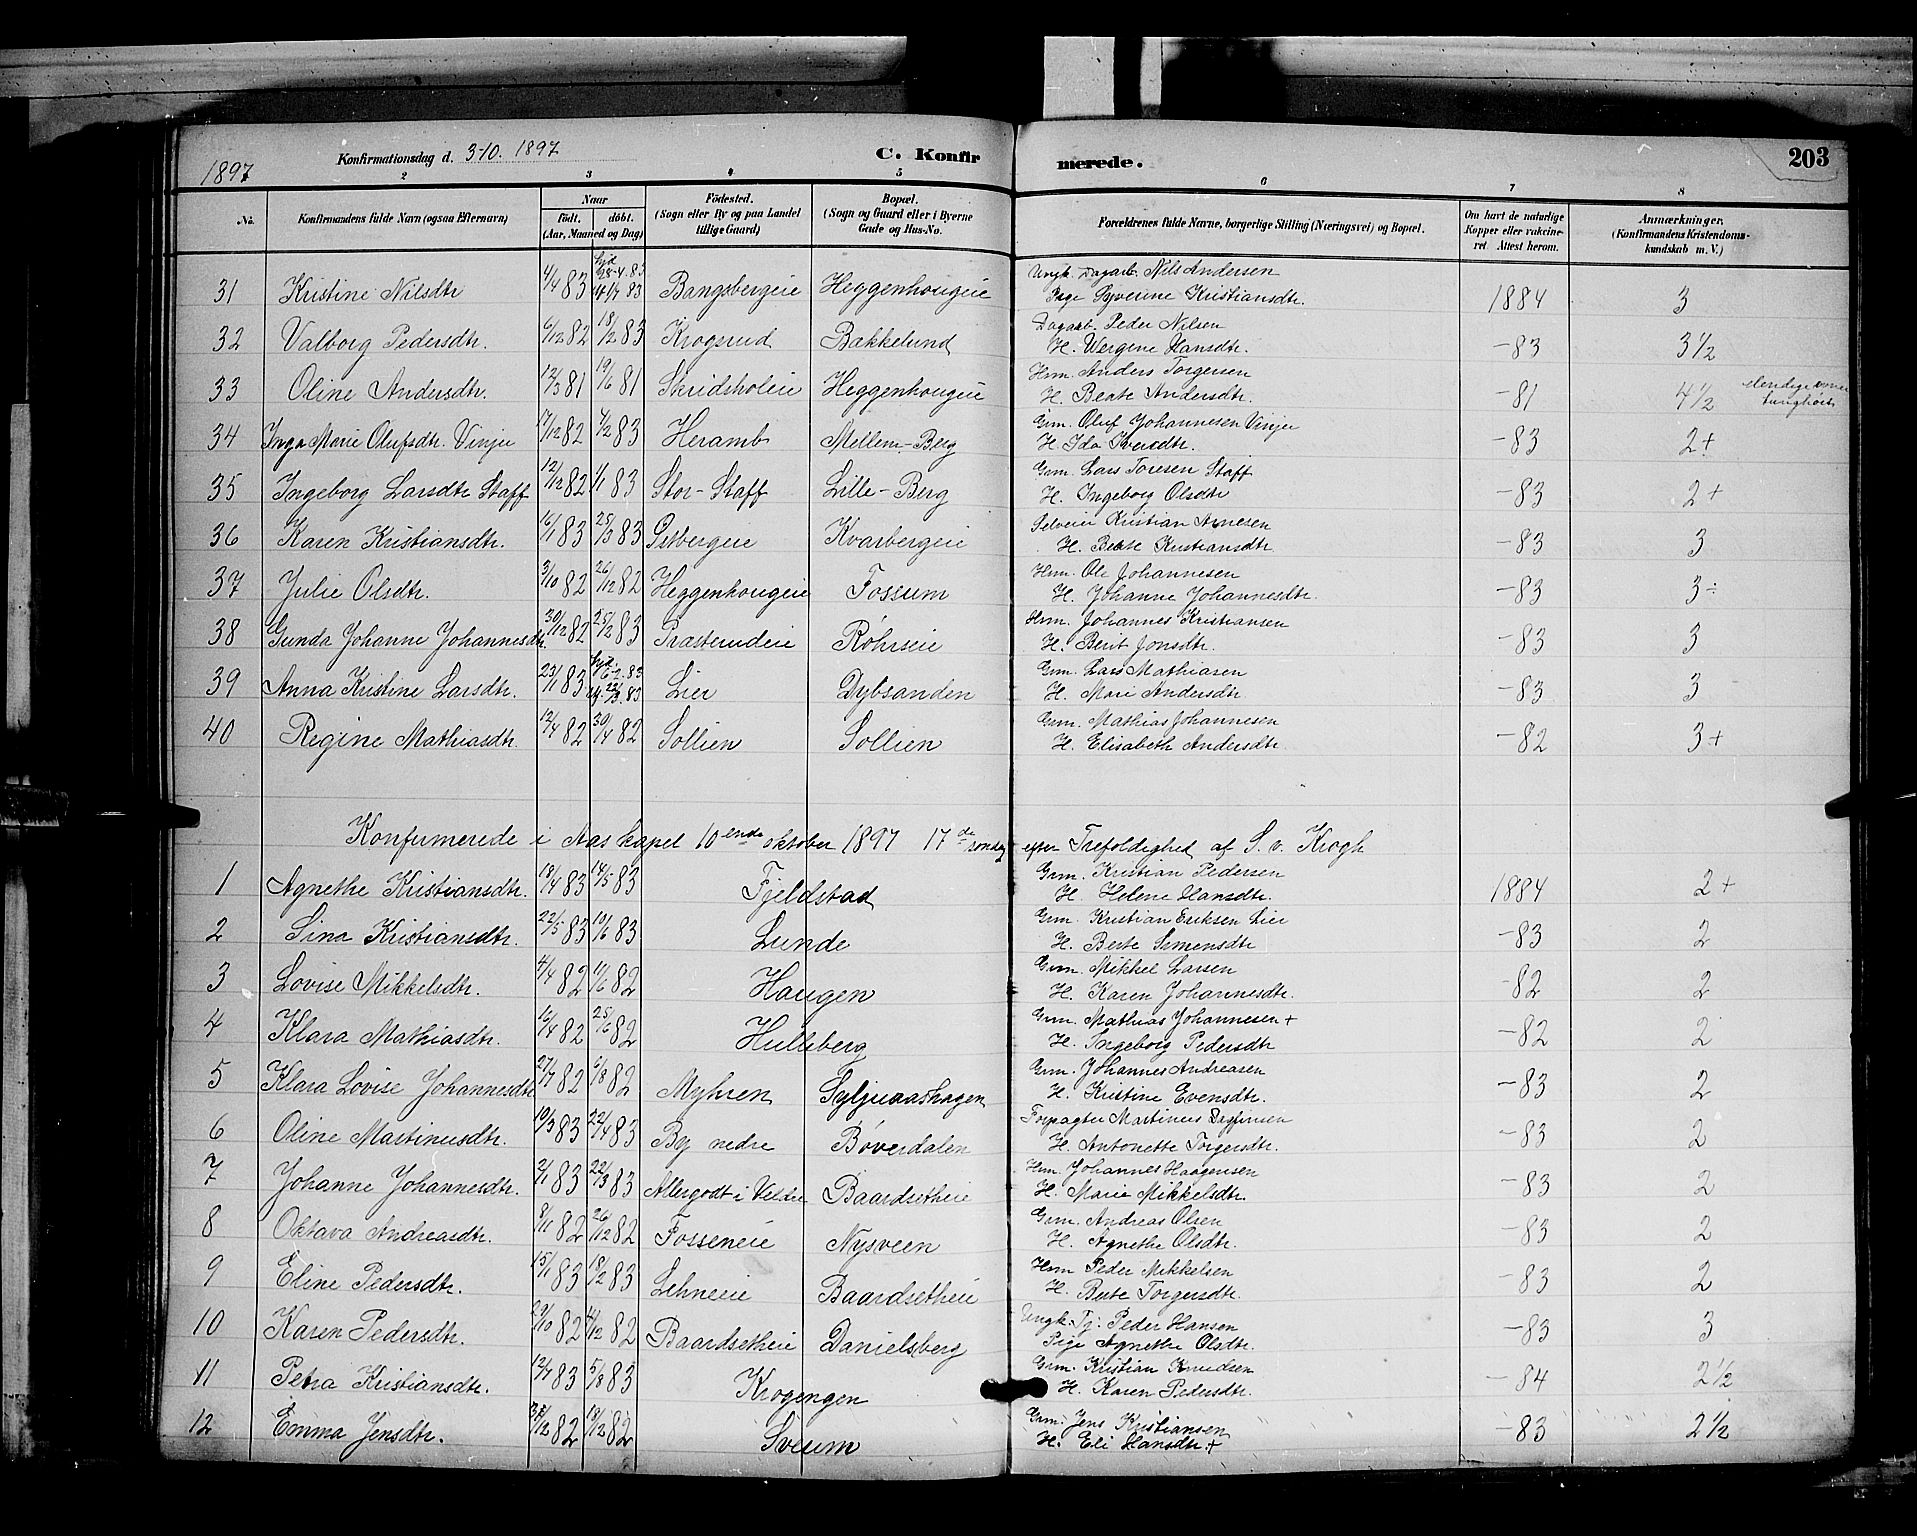 1897 Konfirmationsdag d. 3-10. 1897 C. Konfirmerede. 203
2 3 4 5 6 7 8
No. Konfirmandens fulde Navn (ogsaa Efternavn) Naar født. døbt. (Aar, Maaned og Dag) Fødested. (Sogn eller By og paa Landet tillige Gaard) Bopæl. (Sogn og Gaard eller i Byerne Gade og Hus-No. Forældrenes fulde Navne, borgerlige Stilling (Næringsvei) og Bopæl. Om havt de naturlige Kopper eller vaccineret Attest herom. Anmærkninger. (Konfirmandens Kristendomskundskab m. V.)
31 Kristine Nilsdtr 4/4 83 hjd 28-4.83 Bangsbergeie Heggenhougeie Ungk. Dagarb. Nils Andersen
Pige Syverine Kristiansdtr. 1884 3
32 Valborg Pedersdtr. 6/12 82 18/2 83 Krogsrud Bakkelund Dagarb. Peder Nilsen
H. Wergine Hansdtr. -83 3 1/2
33 Oline Andersdtr. 12/3 81 19/6 81 Skridsholeie Heggenhougeie Hrm. Anders Torgersen
H. Beate Andersdtr. -81 4 1/2 elendige tunghørt
34 Inga Marie Olufsdtr. Vinje 17/12 82 4/2 83 Heramb Mellem-Berg Grm. Oluf Johannesen Vinje
H. Ida Iversdtr. -83 2+
35 Ingeborg Larsdtr Staff 12/12 82 1/1 83 Stor-Staff Lille-Berg Grm. Lars Toresen Staff
H. Ingeborg Olsdtr -83 2+
36 Karen Kristiansdtr. 16/1 83 25/3 83 Østbergeie Kvarbergeie Selveier Kristian Arnesen
H. Beate Kristiansdtr -83 3
37 Julie Olsdtr. 3/10 82 26/12 82 Heggenhougeie Fossum Hrm. Ole Johannesen
H. Johanne Johannesdtr. -83 3÷
38 Gunda Johanne Johannesdtr. 30/12 82 25/2 83 Præsterudeie Røhneie Hrm. Johannes Kristiansen
H. Berit Jonsdtr. -83 3
39 Anna Kristine Larsdtr. 23/1 83 Lier Dybsanden Grm. Lars Mathiasen
H. Mari Andersdtr -83 3
40 Regine Mathiasdtr. 12/4 82 30/4 82 Sollien Sollien Grm. Mathias Johannesen
H. Elisabeth Andersdtr. -82 3+
Konfirmerede i Aas kapel 10ende oktober 1897 17de søndag efter Trefoldighed af S. v. Krogh
1 Agnethe Kristiansdtr. 18/4 83 14/5 83 Fjeldstad Grm. Kristian Pedersen
H. Helene Hansdtr. 1884 2+
2 Sina Kristiansdtr. 22/5 83 10/6 83 Lunde Grm. Kristian Eriksen Lier
H. Berte Simensdtr -83 2
3 Lovise Mikkelsdtr. 4/4 82 11/6 82 Haugen Grm. Mikkel Larsen
H. Karen Johannesdtr. -82 2
4 Klara Mathiasdtr. 16/4 82 25/6 82 Hulleberg Grm. Mathias Johannesen +
H. Ingeborg Pedersdtr -82 2
5 Klara Lovise Johannesdtr 27/7 82 6/8 82 Myhren Syljuaashagen Grm. Johannes Andreasen
H. Kristine Evensdtr. -83 2
6 Oline Martinusdtr. 10/3 83 22/4 83 By nedre Bøverdalen Forpagter Martinus Dagfinsen
H. Antonette Torgersdtr. -83 2
7 Johanne Johannesdtr. 2/1 83 22/3 83 Allergodt i Veldre Baardsetheie Hrm. Johannes Haagensen
H. Marie Mikkelsdtr. -83 2
8 Oktava Andreasdtr. 8/11 82 26/12 82 Fosseneie Nysveen Grm. Andreas Olsen
H. Agnethe Olsdtr. -83 2
9 Eline Pedersdtr. 15/1 83 18/2 83 Lehneie Baardsetheie Hrm Peder Mikkelsen
H. Berte Torgersdtr. -83 2
10 Karen Pedersdtr. 29/10 82 4/12 82 Baardsetheie Danielsberg Ungk. Tj. Peder Hansen
Pige Agnethe Olsdtr. -83 3
11 Petra Kristiansdtr. 12/7 83 5/8 83 Krogengen Grm. Kristian Knudsen
H. Karen Pedersdtr. -84 2 1/2
12 Emma Jensdtr. 82 82 Sveum Grm. Jens Kristiansen
H. Eli Hansdtr + -83 2 1/2